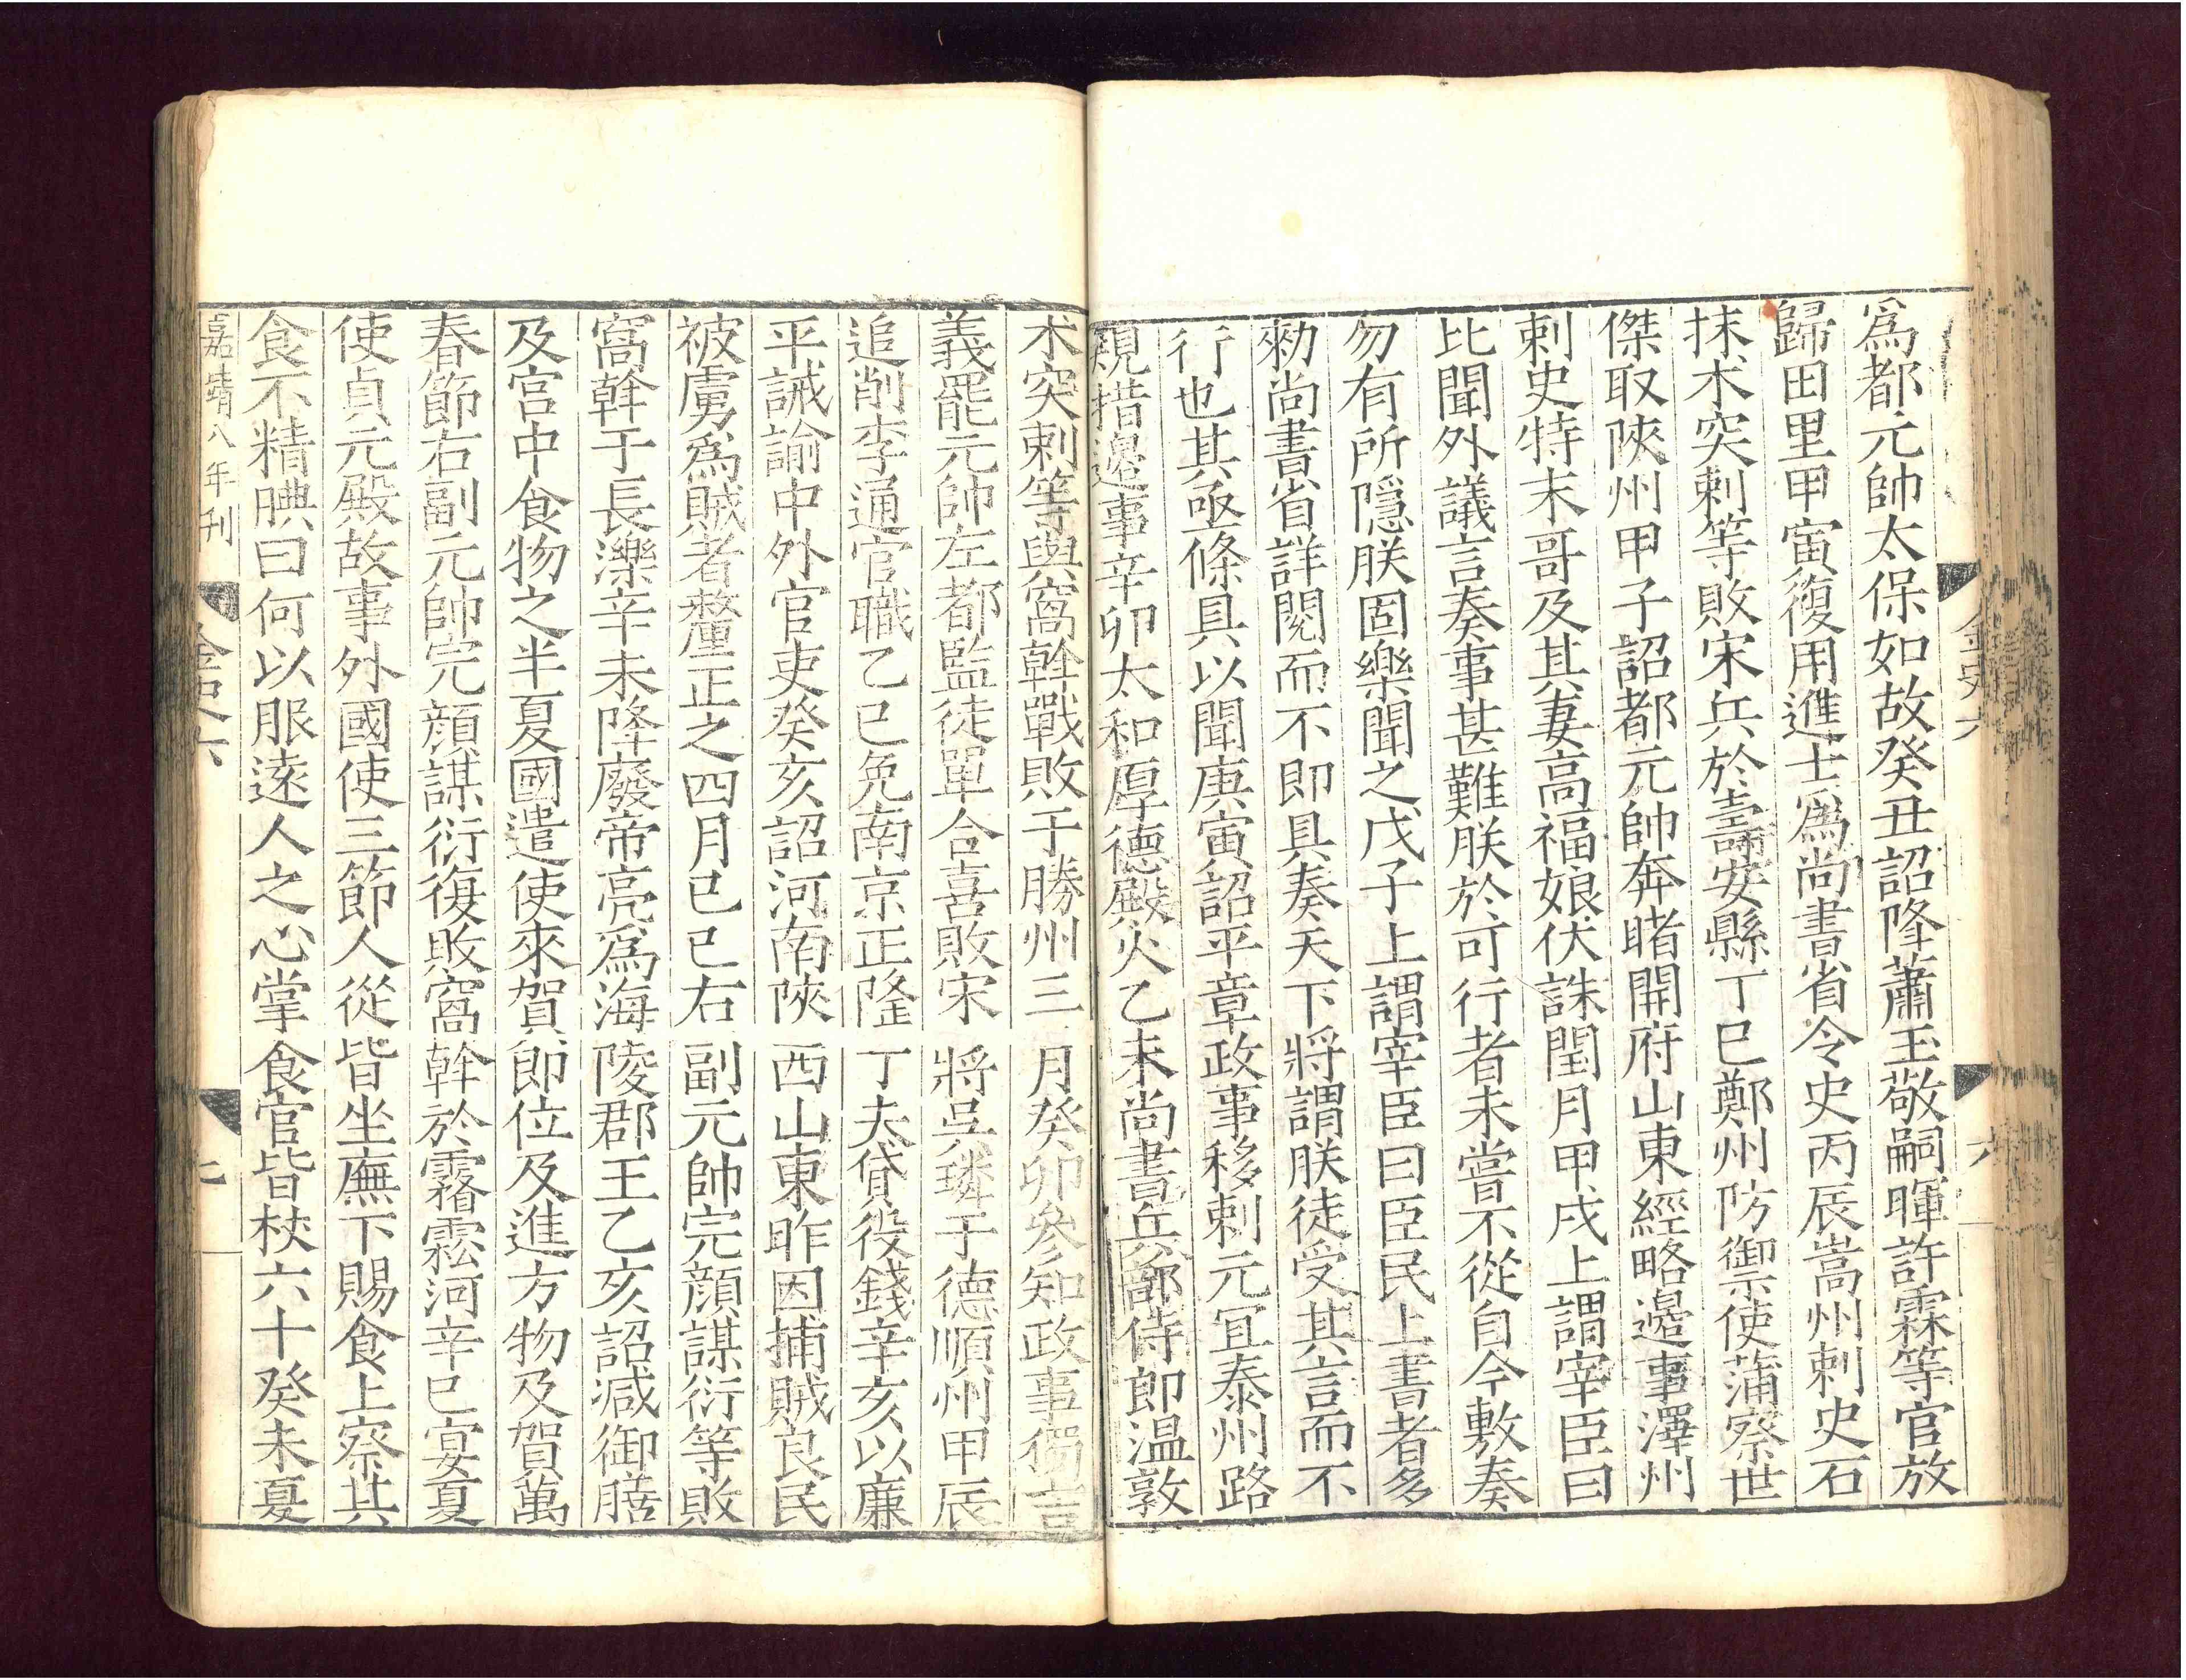 金史六
六
爲都元帥太保如故癸丑詔降蕭玉敬嗣暉許霖等官放
歸田里甲寅復用進士爲尚書省令史丙辰嵩州刺史石
抹术突剌等敗宋兵於壽安縣丁巳鄭州防禦使蒲察世
傑取陝州甲子詔都元帥奔睹開府山東經略邊事澤州
刺史特末哥及其妻高福娘伏誅閏月甲戌上謂宰臣曰
比聞外議言奏事甚難朕於可行者未嘗不從自今敷奏
勿有所隱朕固樂聞之戊子上謂宰臣曰臣民上書者多
勑尚書省詳閱而不即具奏天下將謂朕徒受其言而不
行也其亟條具以聞庚寅詔平章政事移剌元冝泰州路
規措邊事辛卯太和厚德殿火乙未尚書兵部侍郎温敦
术突剌等與窩斡戰敗于勝州三月癸卯參知政事獨吉
義罷元帥左都監徒單合喜敗宋將吳璘于德順州甲辰
追削李通官職乙巳免南京正隆丁夫貸役錢辛亥以廉
平誡諭中外官吏癸亥詔河南陝西山東昨因捕賊良民
被虜爲賊者釐正之四月己巳右副元帥完顔謀衍等敗
窩斡于長濼辛未降廢帝亮爲海陵郡王乙亥詔減御膳
及宮中食物之半夏國遣使來賀即位及進方物及賀萬
春節右副元帥完顔謀衍復敗窩斡於霿䨦河辛巳宴夏
使貞元殿故事外國使三節人從皆坐廡下賜食上察其
食不精腆曰何以服遠人之心掌食官皆杖六十癸未夏
嘉靖八年刊
金史六
七